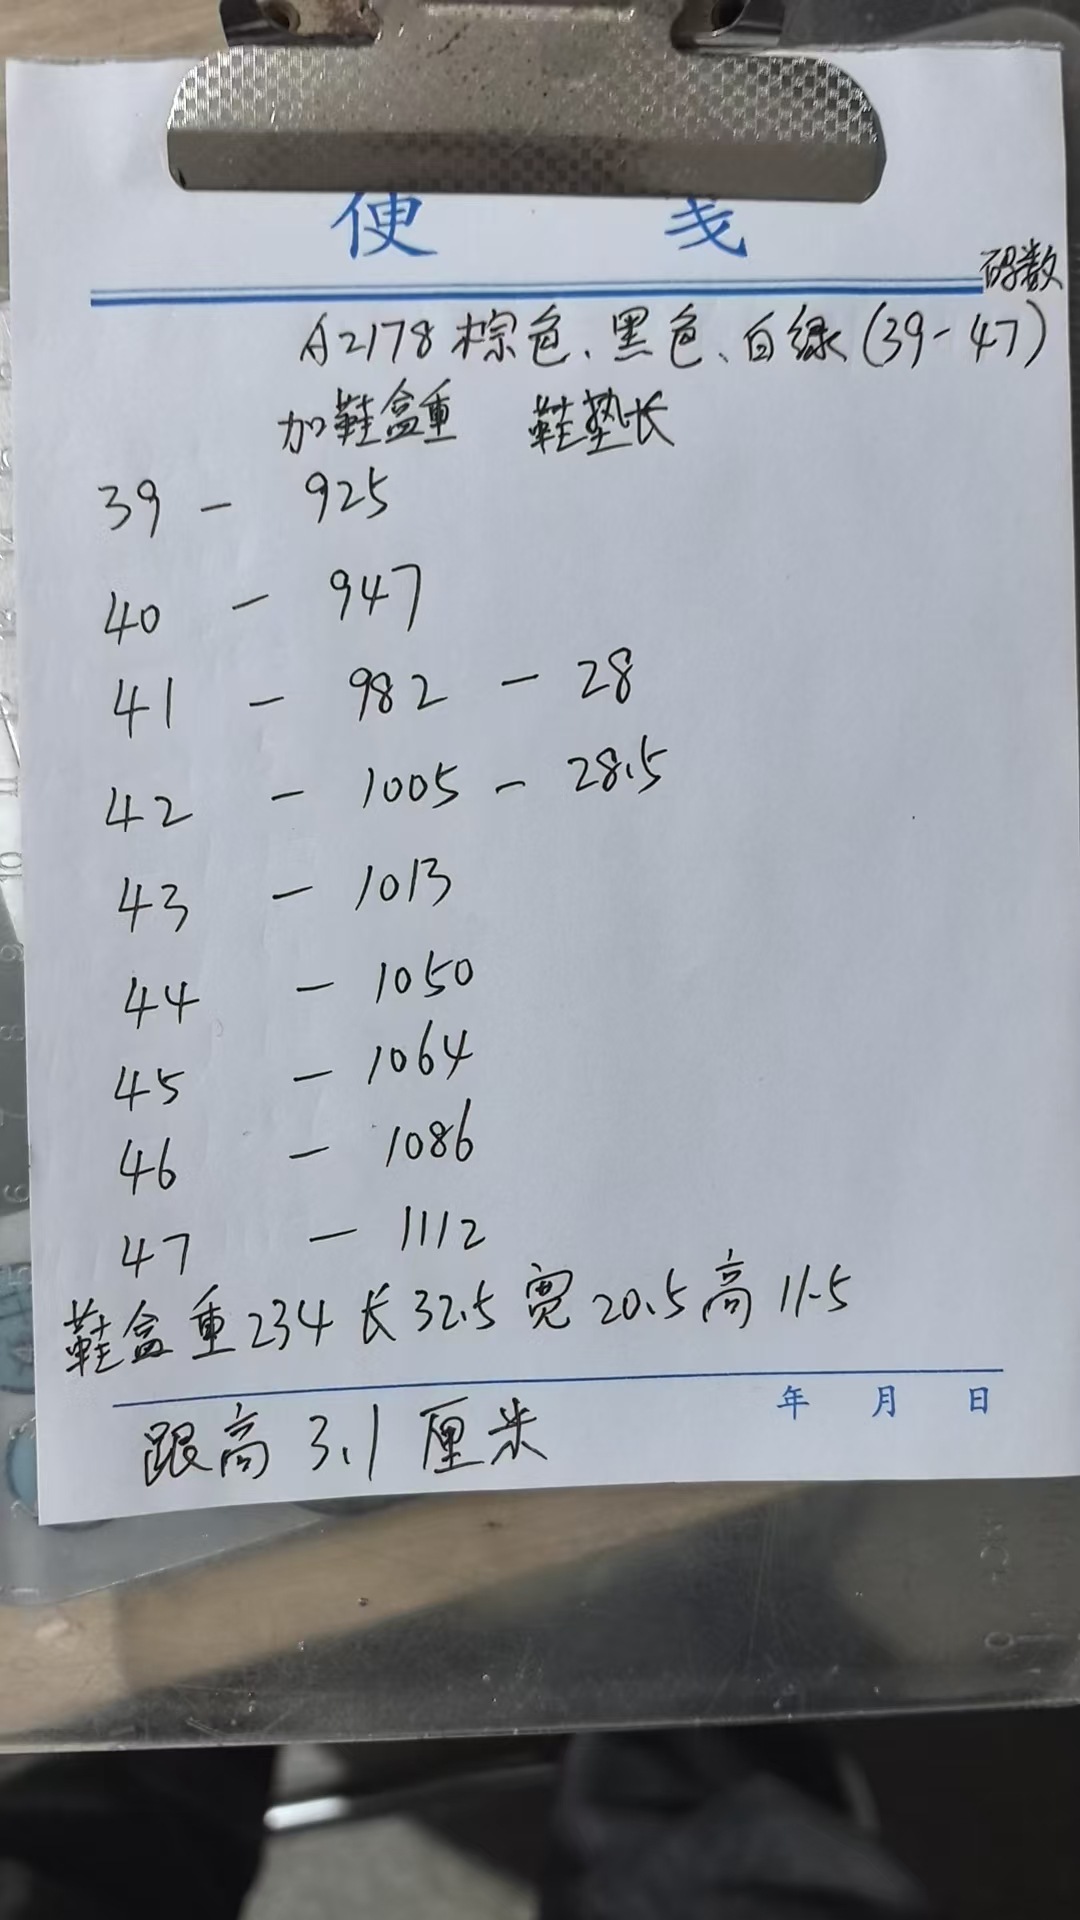 便 笺
码数
A2178棕色、黑色、白绿(39-47)
加鞋盒重 鞋垫长
39 - 925
40 - 947
41 - 982 - 28
42 - 1005 - 28.5
43 - 1013
44 - 1050
45 - 1064
46 - 1086
47 - 1112
鞋盒重234长32.5宽20.5高11.5
年 月 日
跟高 3.1厘米